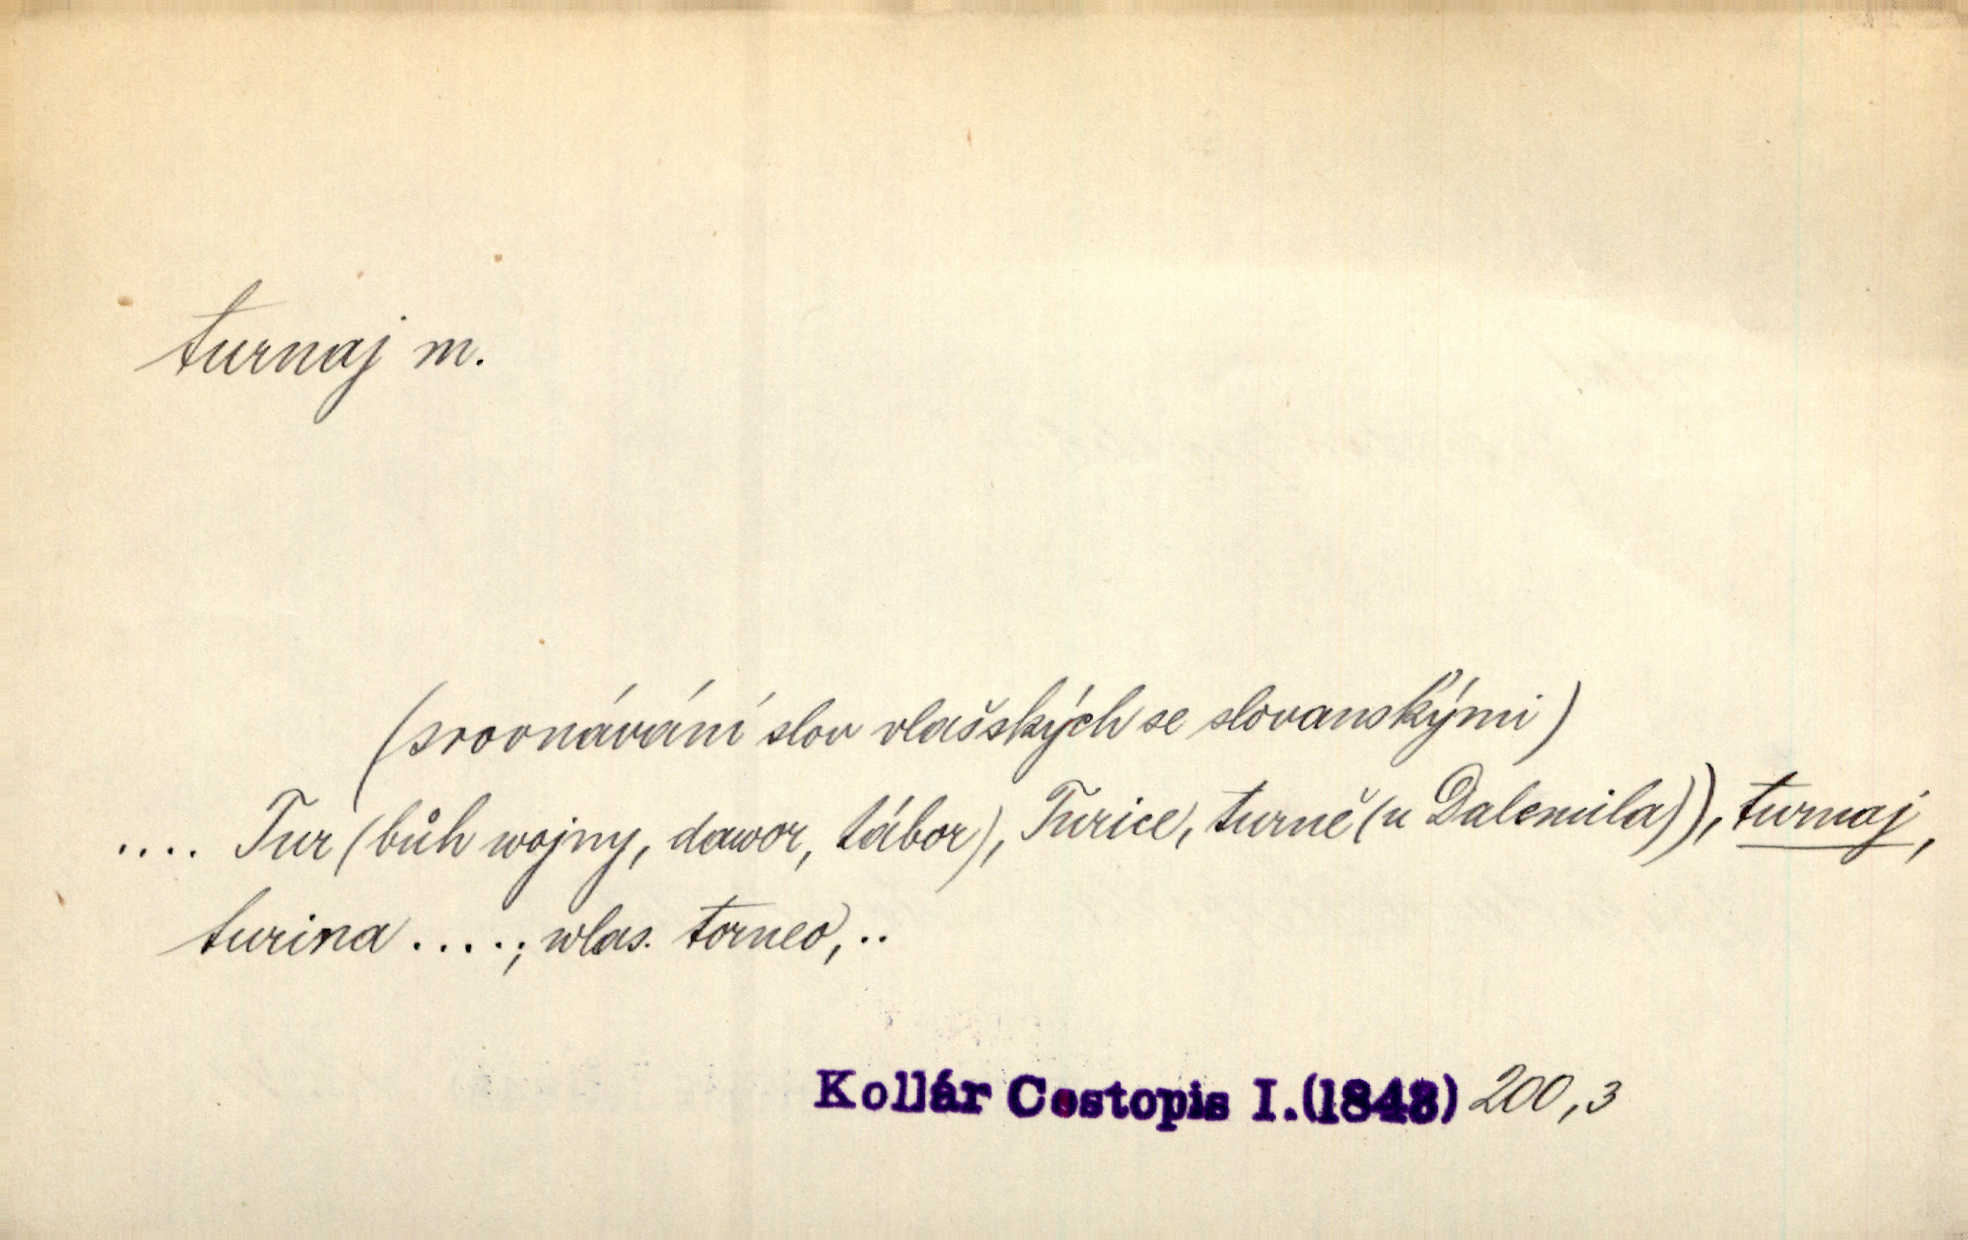 turnaj m.
(srovnávání slov vlašských se slovanskými)
.... Tur (bůh wojny, dawor, tábor), Turice, turně (u Dalemila)), turnaj,
turina ....; wlas. torneo, ..
Kollár Cestopis I. (1843) 200,3